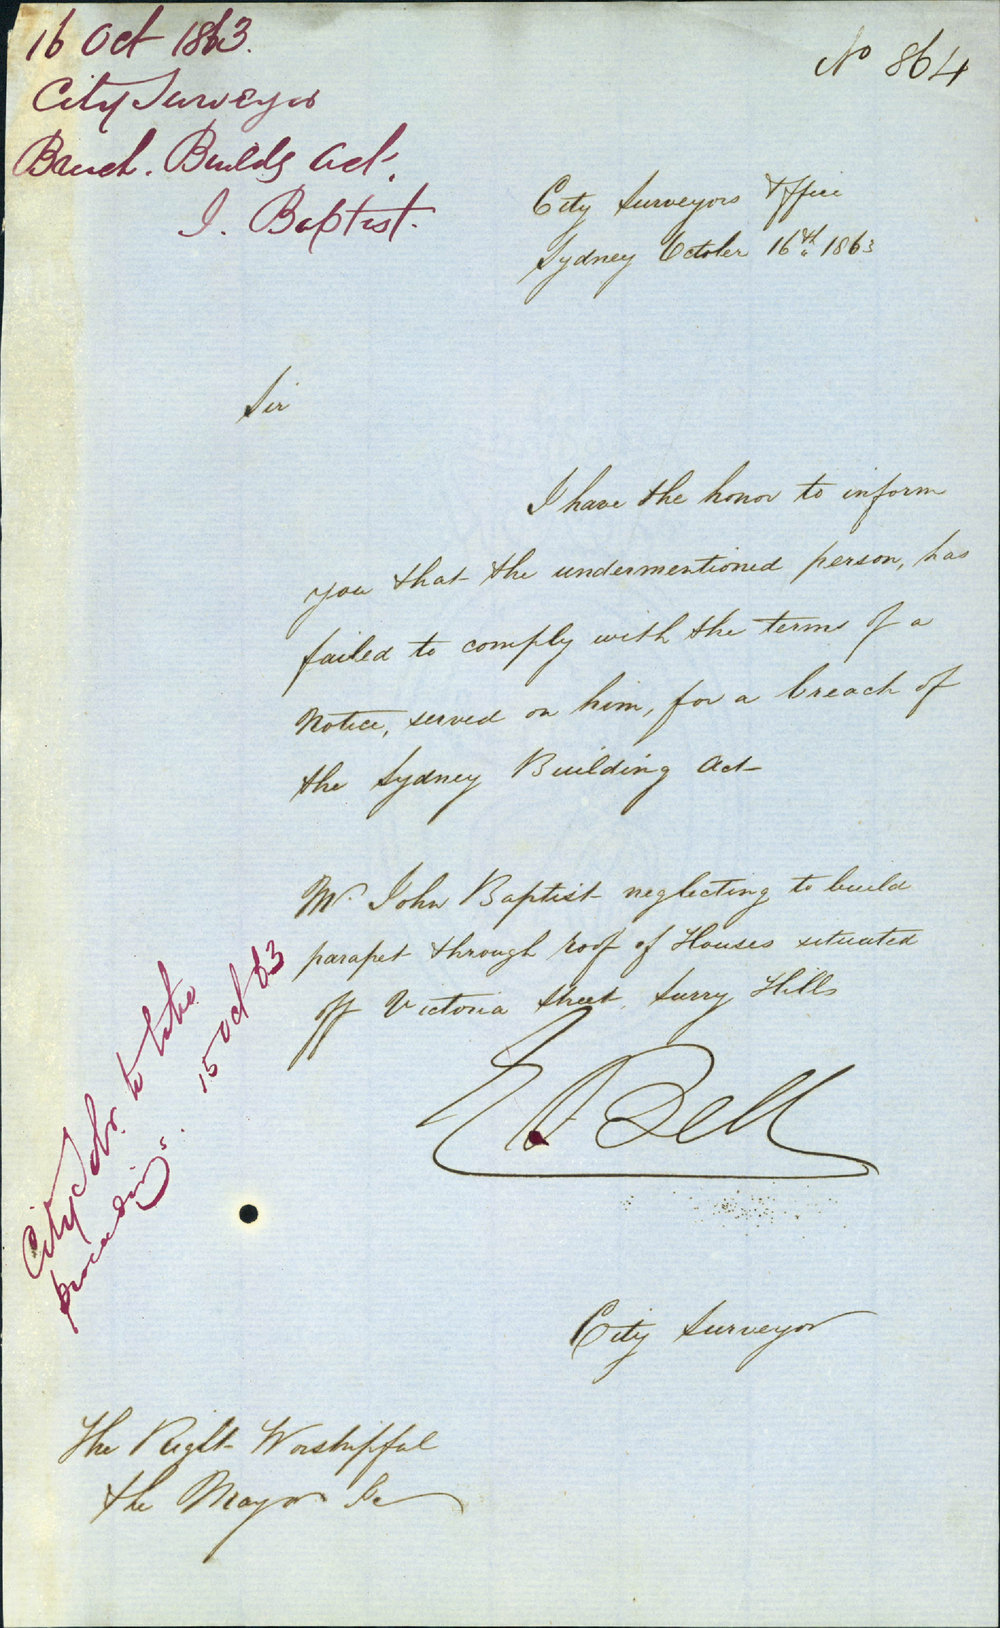 16 Oct 1863.
City Surveyor
Breach. Builds Act.
J. Baptist.
No 864
City Surveyors Office
Sydney October 16th 1863
Sir
I have the honor to inform
you that the undermentioned person, has
failed to comply with the terms of a
Notice, served on him, for a breach of
the Sydney Building Act
Mr John Baptist neglecting to build
parapet through roof of Houses situated
off Victoria Street Surry Hills
E Bell
City Surveyor
City Solr. to take
proceedings.
15 Oct 63
The Right Worshipful
the Mayor &c